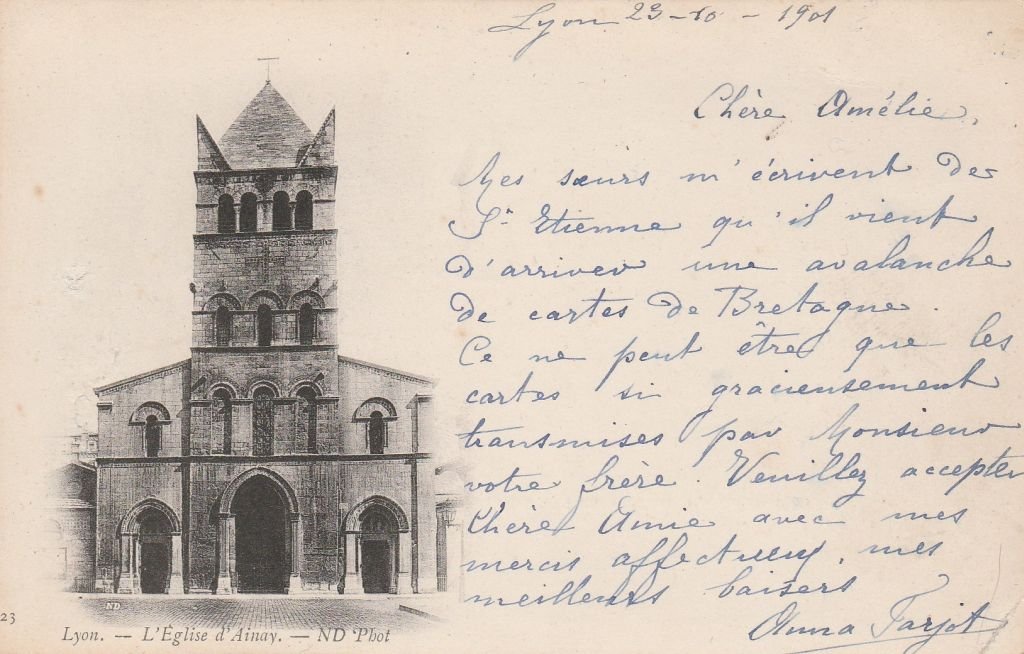 Lyon 23-10-1901
Chère Amélie,
Mes sœurs m'écrivent de
St Etienne qu'il vient
d'arriver une avalanche
de cartes de Bretagne.
Ce ne peut être que les
cartes si gracieusement
transmises par Monsieur
votre frère. Veuillez accepter
Chère Amie avec mes
mercis affectueux, mes
meilleurs baisers
Anna Farjot
ND
23
Lyon. — L'Église d'Ainay. — ND Phot